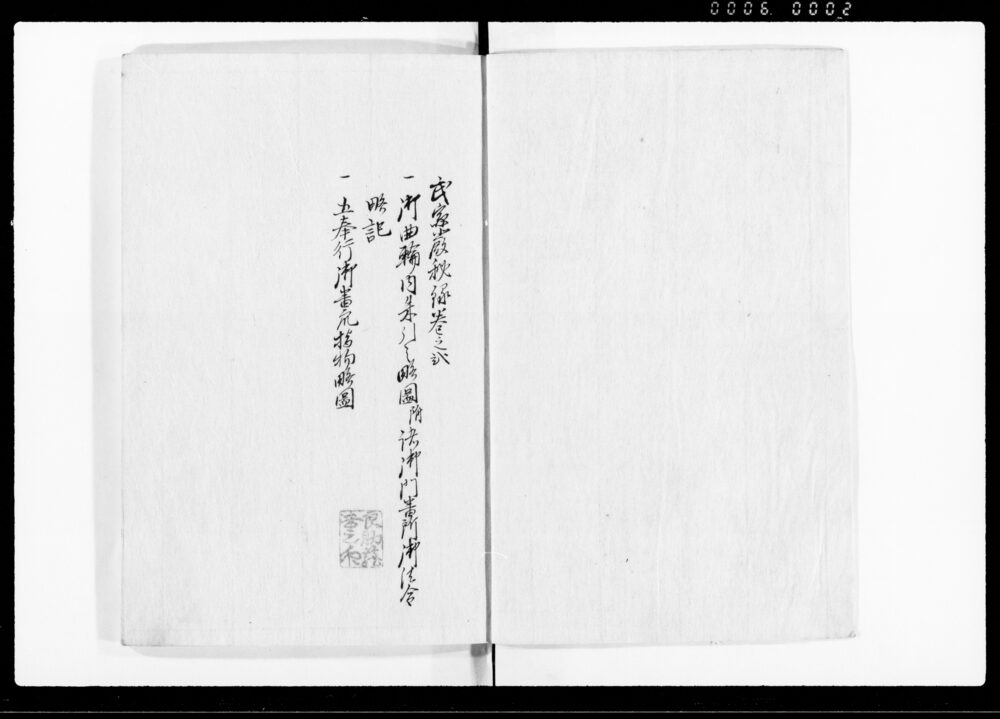 0006 0002
武家厳秘録巻之弐
一御曲輪内朱引之略図附諸御門番所御法令
略記
一五奉行御番衆指物略図